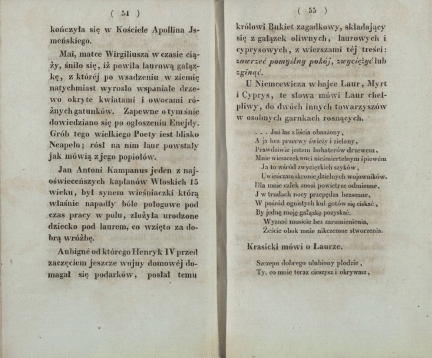 ( 54 )
kończyła się w Kościele Apollina Js-
meńskiego.
Mai, matce Wirgiliusza w czasie cią-
ży, śniło się, iż powiła laurową gałąz-
kę, z której po wsadzeniu w ziemię
natychmiast wyrosło wspaniałe drze-
wo okryte kwiatami i owocami ró-
żnych gatunków. Zapewne o tym śnie
dowiedziano się po ogłoszeniu Eneidy.
Grób tego wielkiego Poety jest blisko
Neapolu; rósł na nim laur powstały
jak mówią z jego popiołów.
Jan Antoni Kampanus jeden z naj-
oświeceńszych kapłanów Włoskich 15
wieku, był synem wieśniaczki którą
właśnie napadły bóle połogowe pod
czas pracy w polu, złożyła urodzone
dziecko pod laurem, co wzięto za do-
brą wróżbę.
Aubigné od którego Henryk IV przed
zaczęciem jeszcze wojny domowéj do-
magał się podarków, posłał temu
( 55 )
królowi Bukiet zagadkowy, składający
się z gałązek oliwnych, laurowych i
cyprysowych, z wierszami téj treści:
zawrzeć pomyślny pokój, zwyciężyć lub
zginąć.
U Niemcewicza w bajce Laur, Myrt
i Cyprys, te słowa mówi Laur cheł-
pliwy, do dwóch innych towarzyszów
w osobnych garnkach rosnących.
. . . Już las z liścia obnażony,
A ja bez przerwy świeży i zielony,
Prawdziwie jestem bohaterów drzewem,
Mnie wieszczek uczci nieśmiertelnym śpiewem
Ja to wśród zwycięzkich szyków,
Uwieńczam skronie dzielnych wojowników.
Dla mnie człek znosi powietrze odmienne,
J w trudach nocy przepędza bezsenne,
W pośród ognistych kul gotów się ciskać,
By jednę moję gałązkę pozyskać.
Wyznać musicie bez zarumienienia,
Żeście obok mnie nikczemne stworzenia.
Krasicki mówi o Laurze.
Szczepu dobrego ulubiony płodzie,
Ty, co mnie teraz cieszysz i okrywasz,